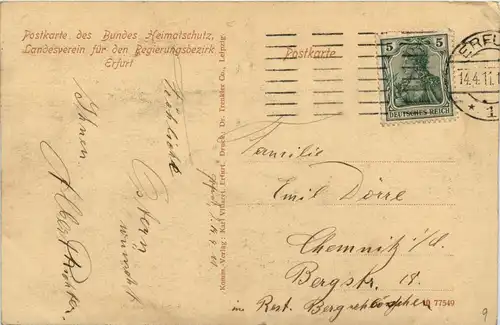 Postkarte des Bundes Heimatschutz,
Landesverein für den Regierungsbezirk
Erfurt
Postkarte
5 5
DEUTSCHES REICH
ERFU
14.4.11.
* 1
Komm. Verlag: Karl Villaret, Erfurt. Druck: Dr. Trenkler Co., Leipzig.
Fröhliche
Ostern
wünscht
Ihnen
Albert
Familie
Emil Dörre
Chemnitz i/S.
Bergstr. 18.
im Rest. Bergschlösschen
77549
9